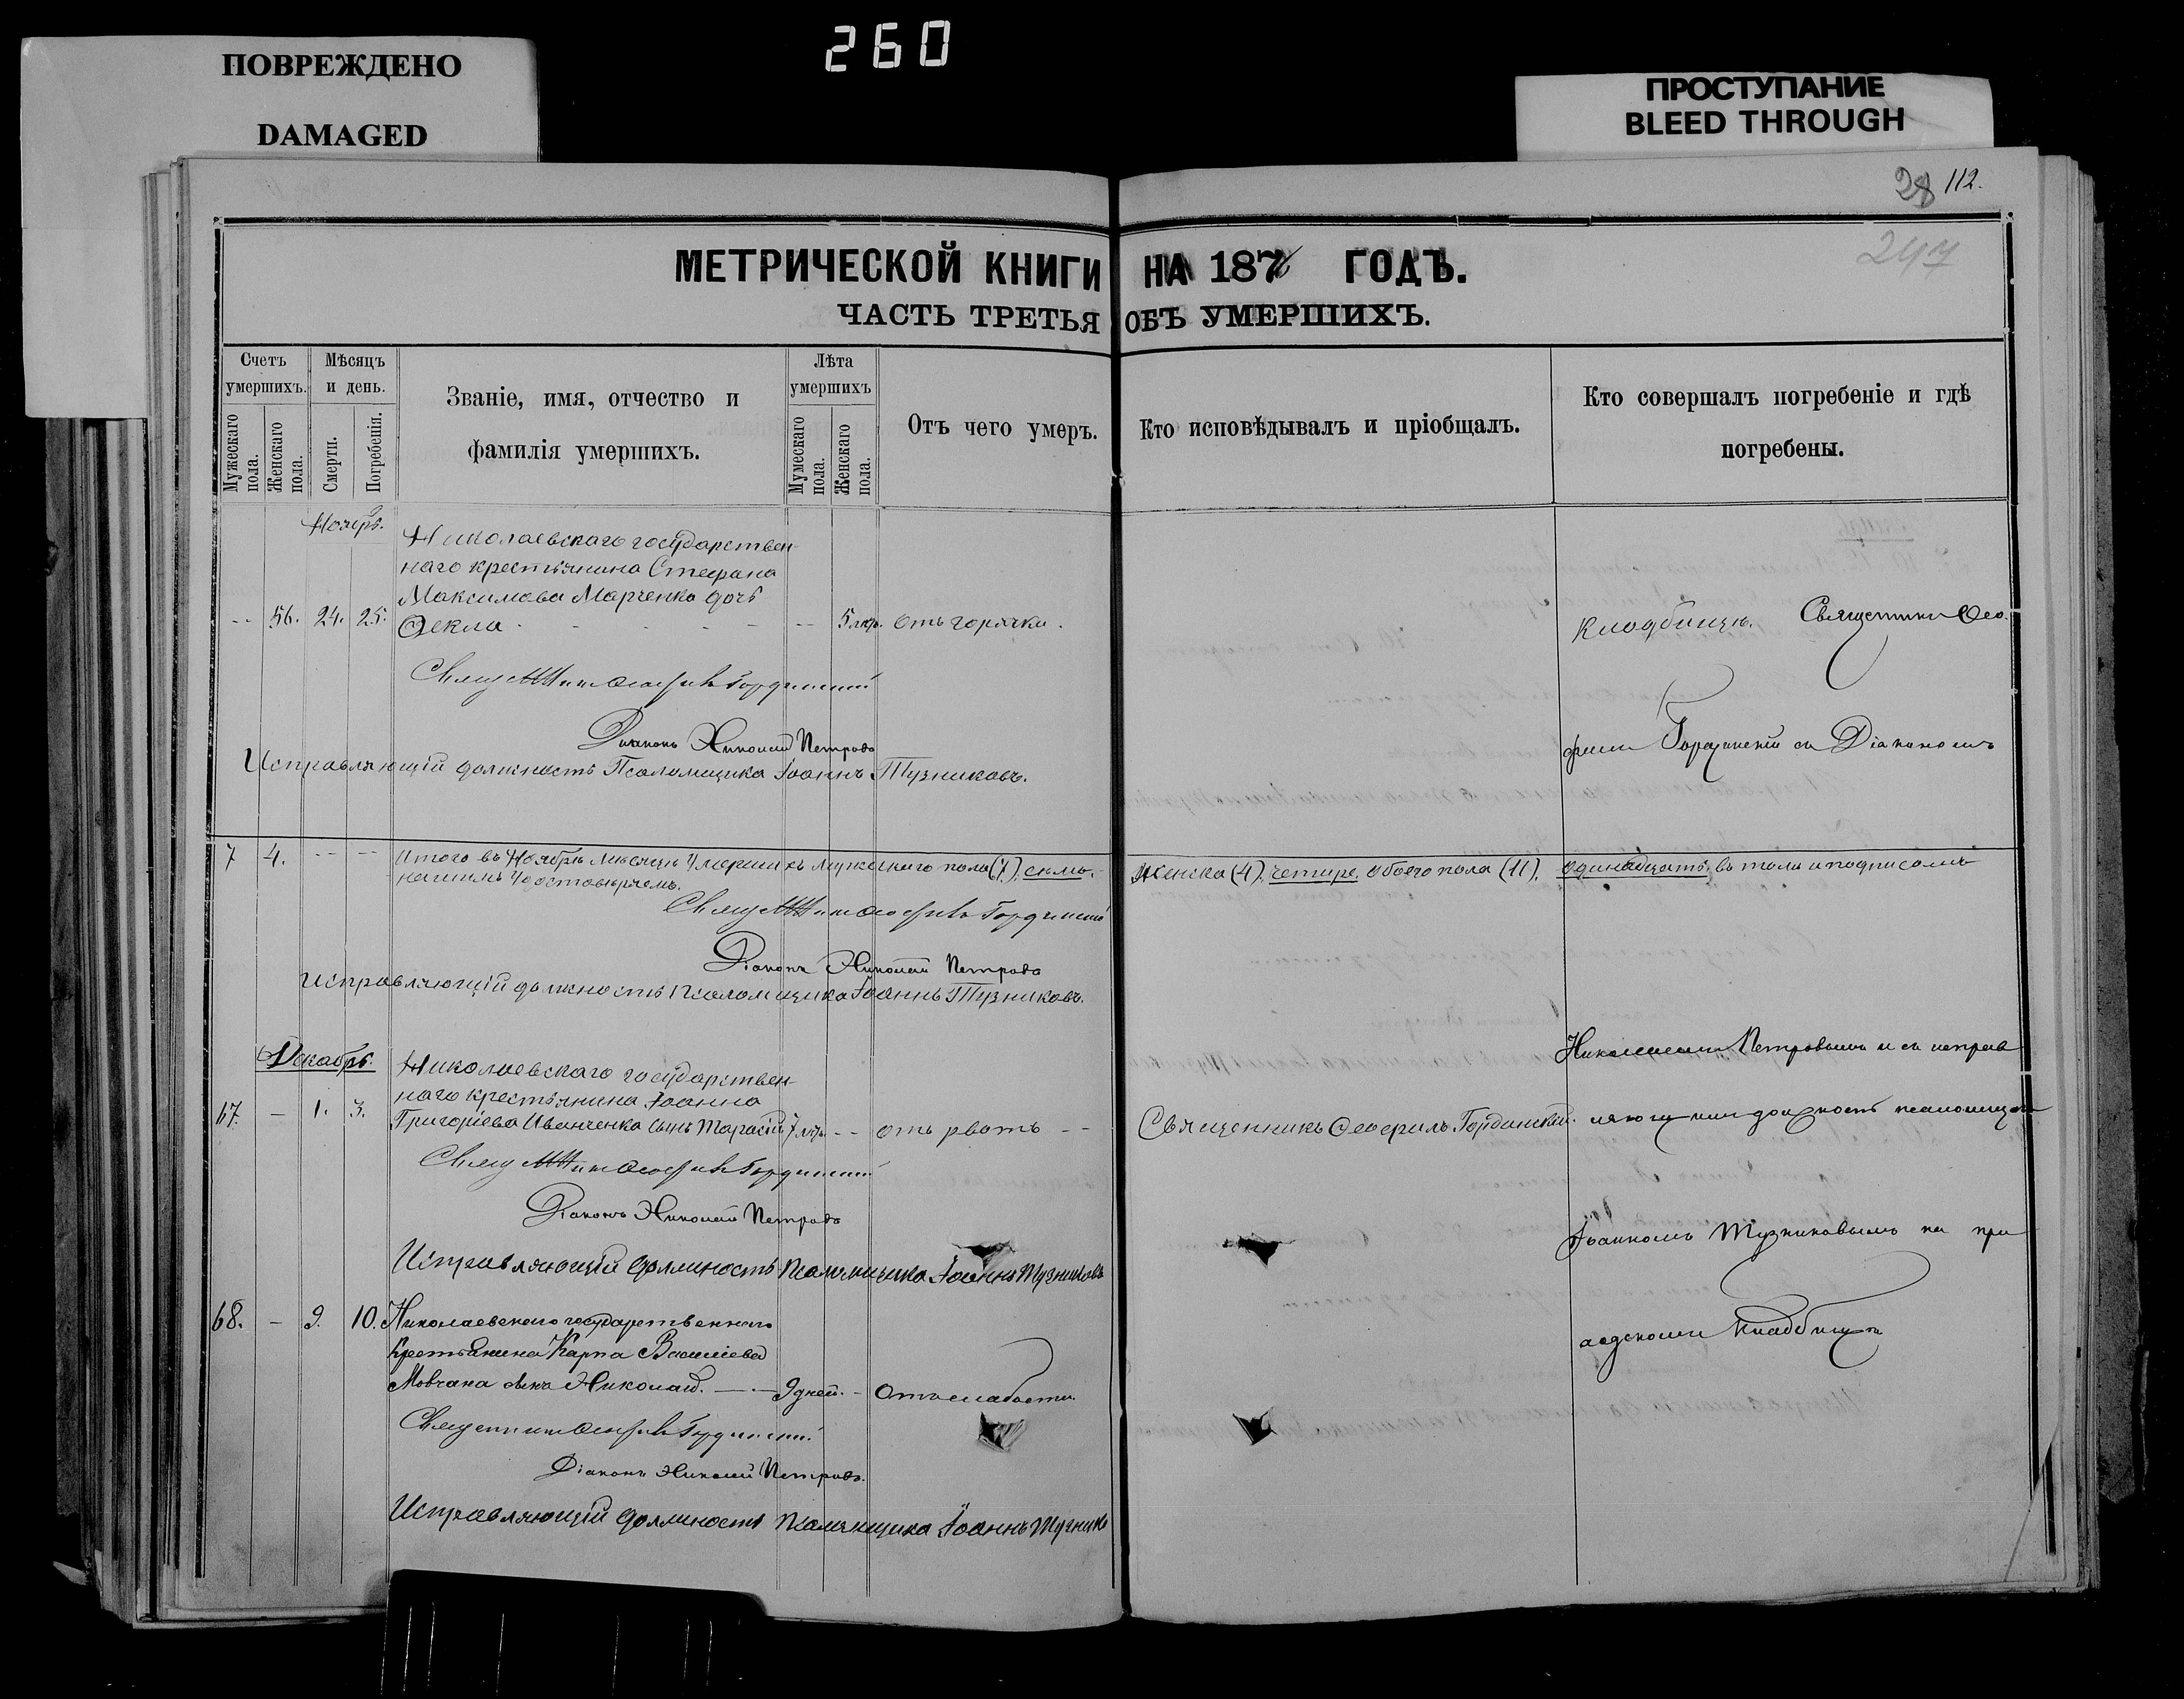 260
ПОВРЕЖДЕНО
DAMAGED
ПРОСТУПАНИЕ
BLEED THROUGH
28 112.
247
МЕТРИЧЕСКОЙ КНИГИ НА 187 ГОДЪ.
ЧАСТЬ ТРЕТЬЯ ОБЪ УМЕРШИХЪ.
Счетъ умершихъ.
Мужескаго пола.
Женскаго пола.
Мѣсяцъ и день.
Смерти.
Погребенія.
Званіе, имя, отчество и
фамилія умершихъ.
Лѣта умершихъ
Мужескаго пола.
Женскаго пола.
Отъ чего умеръ.
Кто исповѣдывалъ и пріобщалъ.
Кто совершалъ погребеніе и гдѣ
погребены.
Ноябрь.
Николаевскаго государствен-
наго крестьянина Стефана
Максимова Марченко дочь
-- 56. 24. 25. Ѳекла - - - - - -- 5 лѣт. отъ горячки.
Священникъ Ѳеофилъ Гординскій
Діаконъ Николай Петровъ
Исправляющій должность Псаломщика Іоаннъ Тузниковъ.
7 4. -- -- Итого въ Ноябрѣ мѣсяцѣ умершихъ мужескаго пола (7), семь, женска (4), четыре, обоего пола (11), одинадцать, въ томъ и подписомъ
нашимъ удостовѣряемъ.
Священникъ Ѳеофилъ Гординскій
Діаконъ Николай Петровъ
Исправляющій должность Псаломщика Іоаннъ Тузниковъ.
Декабрь.
Николаевскаго государствен-
наго крестьянина Іоанна
67. — 1. 3. Григоріева Иванченка сынъ Тарасій 7 лѣтъ -- отъ рвоты -- Священникъ Ѳеофилъ Гординскій.
Священникъ Ѳеофилъ Гординскій
Діаконъ Николай Петровъ
Исправляющій должность Псаломщика Іоаннъ Тузниковъ
68. — 9. 10. Николаевскаго государственнаго
крестьянина Карпа Василіева
Мовчана сынъ Николай. — - 9 дней. - отъ слабости.
Священникъ Ѳеофилъ Гординскій
Діаконъ Николай Петровъ.
Исправляющій должность Псаломщика Іоаннъ Тузников
Священникъ Ѳео-
филъ Гординскій съ Діакономъ
Николаемъ Петровымъ и съ исправ
ляющимъ должность псаломщика
Іоанномъ Тузниковымъ на при
ходскомъ кладбищѣ